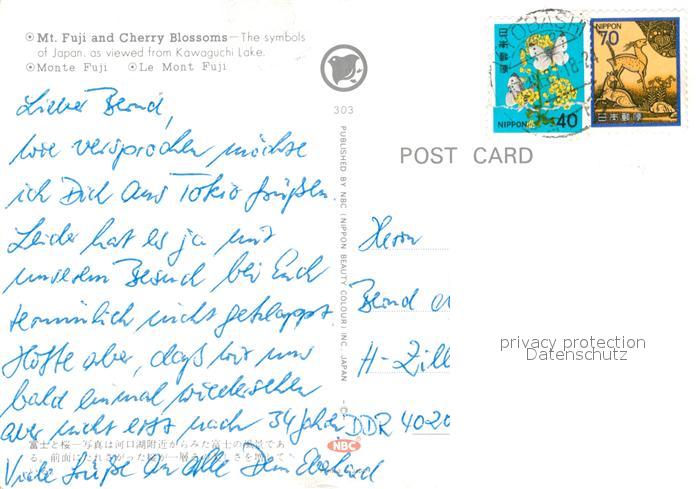 Mt. Fuji and Cherry Blossoms—The symbols
of Japan, as viewed from Kawaguchi Lake.
Monte Fuji Le Mont Fuji
Lieber Bernd,
wie versprochen möchte
ich Dich aus Tokio grüßen.
Leider hat es ja mit
unserem Besuch bei Euch
terminlich nicht geklappt
Hoffe aber, daß wir uns
bald einmal wiedersehen
aber nicht erst nach 34 Jahren
Viele Grüße an Alle Dein Eberhard
富士と桜―写真は河口湖附近からみた富士の風景であ
る。前面にたれさがった桜が一層
303
PUBLISHED BY NBC (NIPPON BEAUTY COLOUR) INC. JAPAN
NBC
POST CARD
日本郵便
NIPPON 40
NIPPON
70
日本郵便
Herrn
Bernd
H-Zill
DDR 4020
privacy protection
Datenschutz